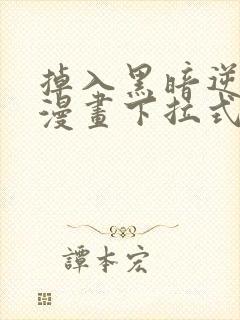 掉入黑暗逆
漫畫下拉式
譚本宏